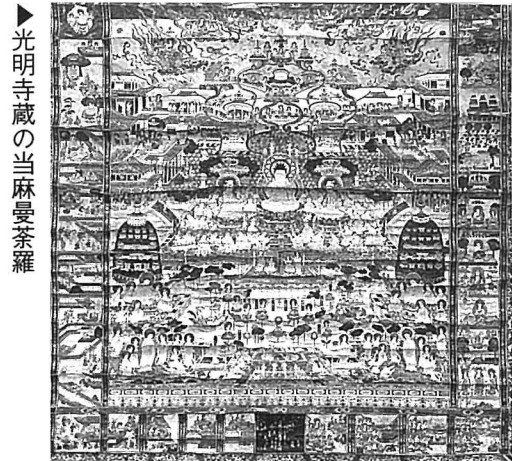 ▶光明寺蔵の当麻曼荼羅